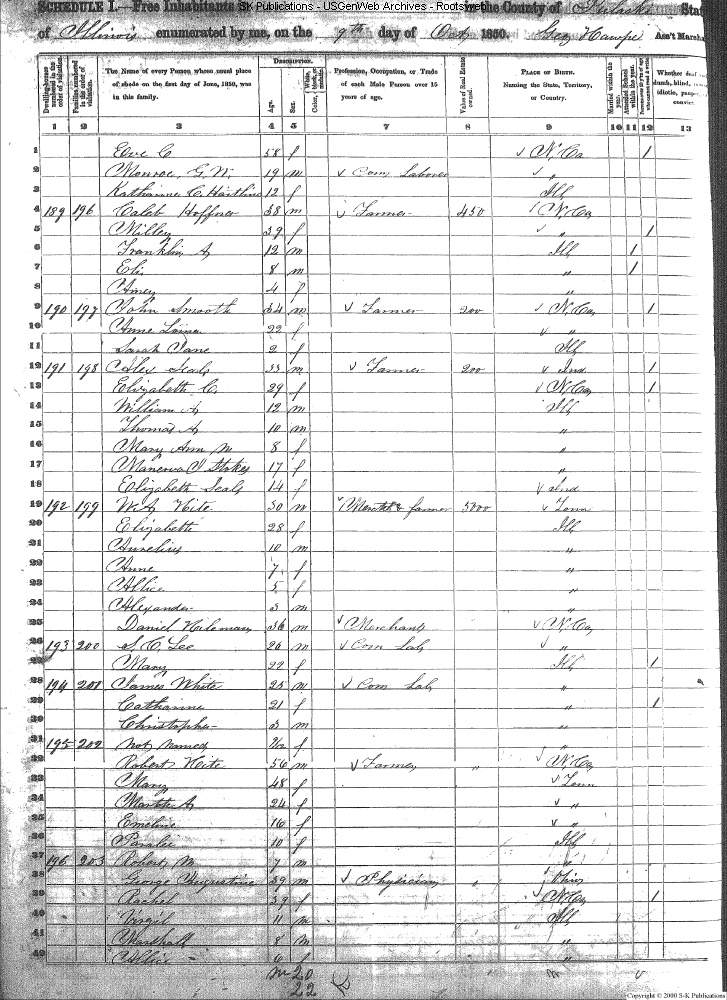 SCHEDULE I.—Free Inhabitants SK Publications - USGenWeb Archives - Rootsweb the County of Pulaski State
of Illinois enumerated by me, on the 9th day of Oct, 1850. Ass't Marsha
Dwelling-houses numbered in the order of visitation.
Families numbered in the order of visitation.
The Name of every Person whose usual place of abode on the first day of June, 1850, was in this family.
DESCRIPTION.
Age.
Sex.
Color,
Profession, Occupation, or Trade of each Male Person over 15 years of age.
Value of Real Estate owned.
PLACE OF BIRTH. Naming the State, Territory, or Country.
Married within the year.
Attended School within the year.
Whether deaf
1 2 3 4 5 6 7 8 9 10 11 12 13
1 Eve C 58 f N. Ca 1
2 Monroe, G. W. 19 m Com, Laborer "
3 Katharine C. Hartline 12 f Ill
4 189 196 Caleb Hoffner 38 m Farmer 450 N. Ca
5 Milley 39 f " 1
6 Franklin A 12 m Ill 1
7 Eli 8 m " 1
8 Amey 4 f "
9 190 197 John Smooth 54 m Farmer 200 N. Ca 1
10 Anne 22 f "
11 Sarah Jane 2 f Ill
12 191 198 Alex Seals 33 m Farmer 200 Ind 1
13 Elizabeth C. 29 f N. Ca 1
14 William A 12 m Ill
15 Thomas A 10 m "
16 Mary Ann M 8 f "
17 Manerva J Stokes 17 f "
18 Elizabeth Seals 14 f Ind
19 192 199 W. A. Hite 30 m Marcht & farmer 5000 Tenn
20 Elizabeth 28 f Ill
21 Aurelius 10 m "
22 Anne 7 f "
23 Allice 5 f "
24 Alexander 3 m "
25 Daniel Hileman 36 m Merchant N. Ca
26 193 200 S. C. Lee 26 m Com Lab "
27 Mary 22 f Ill 1
28 194 201 James White 25 m Com Lab "
29 Catharine 21 f " 1
30 Christopher 3 m "
31 195 202 not named f "
32 Robert Hite 56 m Farmer " N. Ca
33 Mary 48 f Tenn
34 Martha A 24 f "
35 Emeline 16 f "
36 10 f Ill
37 196 203 Robert M 7 m "
38 George Augustine 39 m Physician Ohio
39 Rachel 39 f N. Ca 1
40 Virgil 11 m Ill
41 Marshall 8 m "
42 Allice 6 f "
m 20
22
Copyright © 2000 S-K Publications